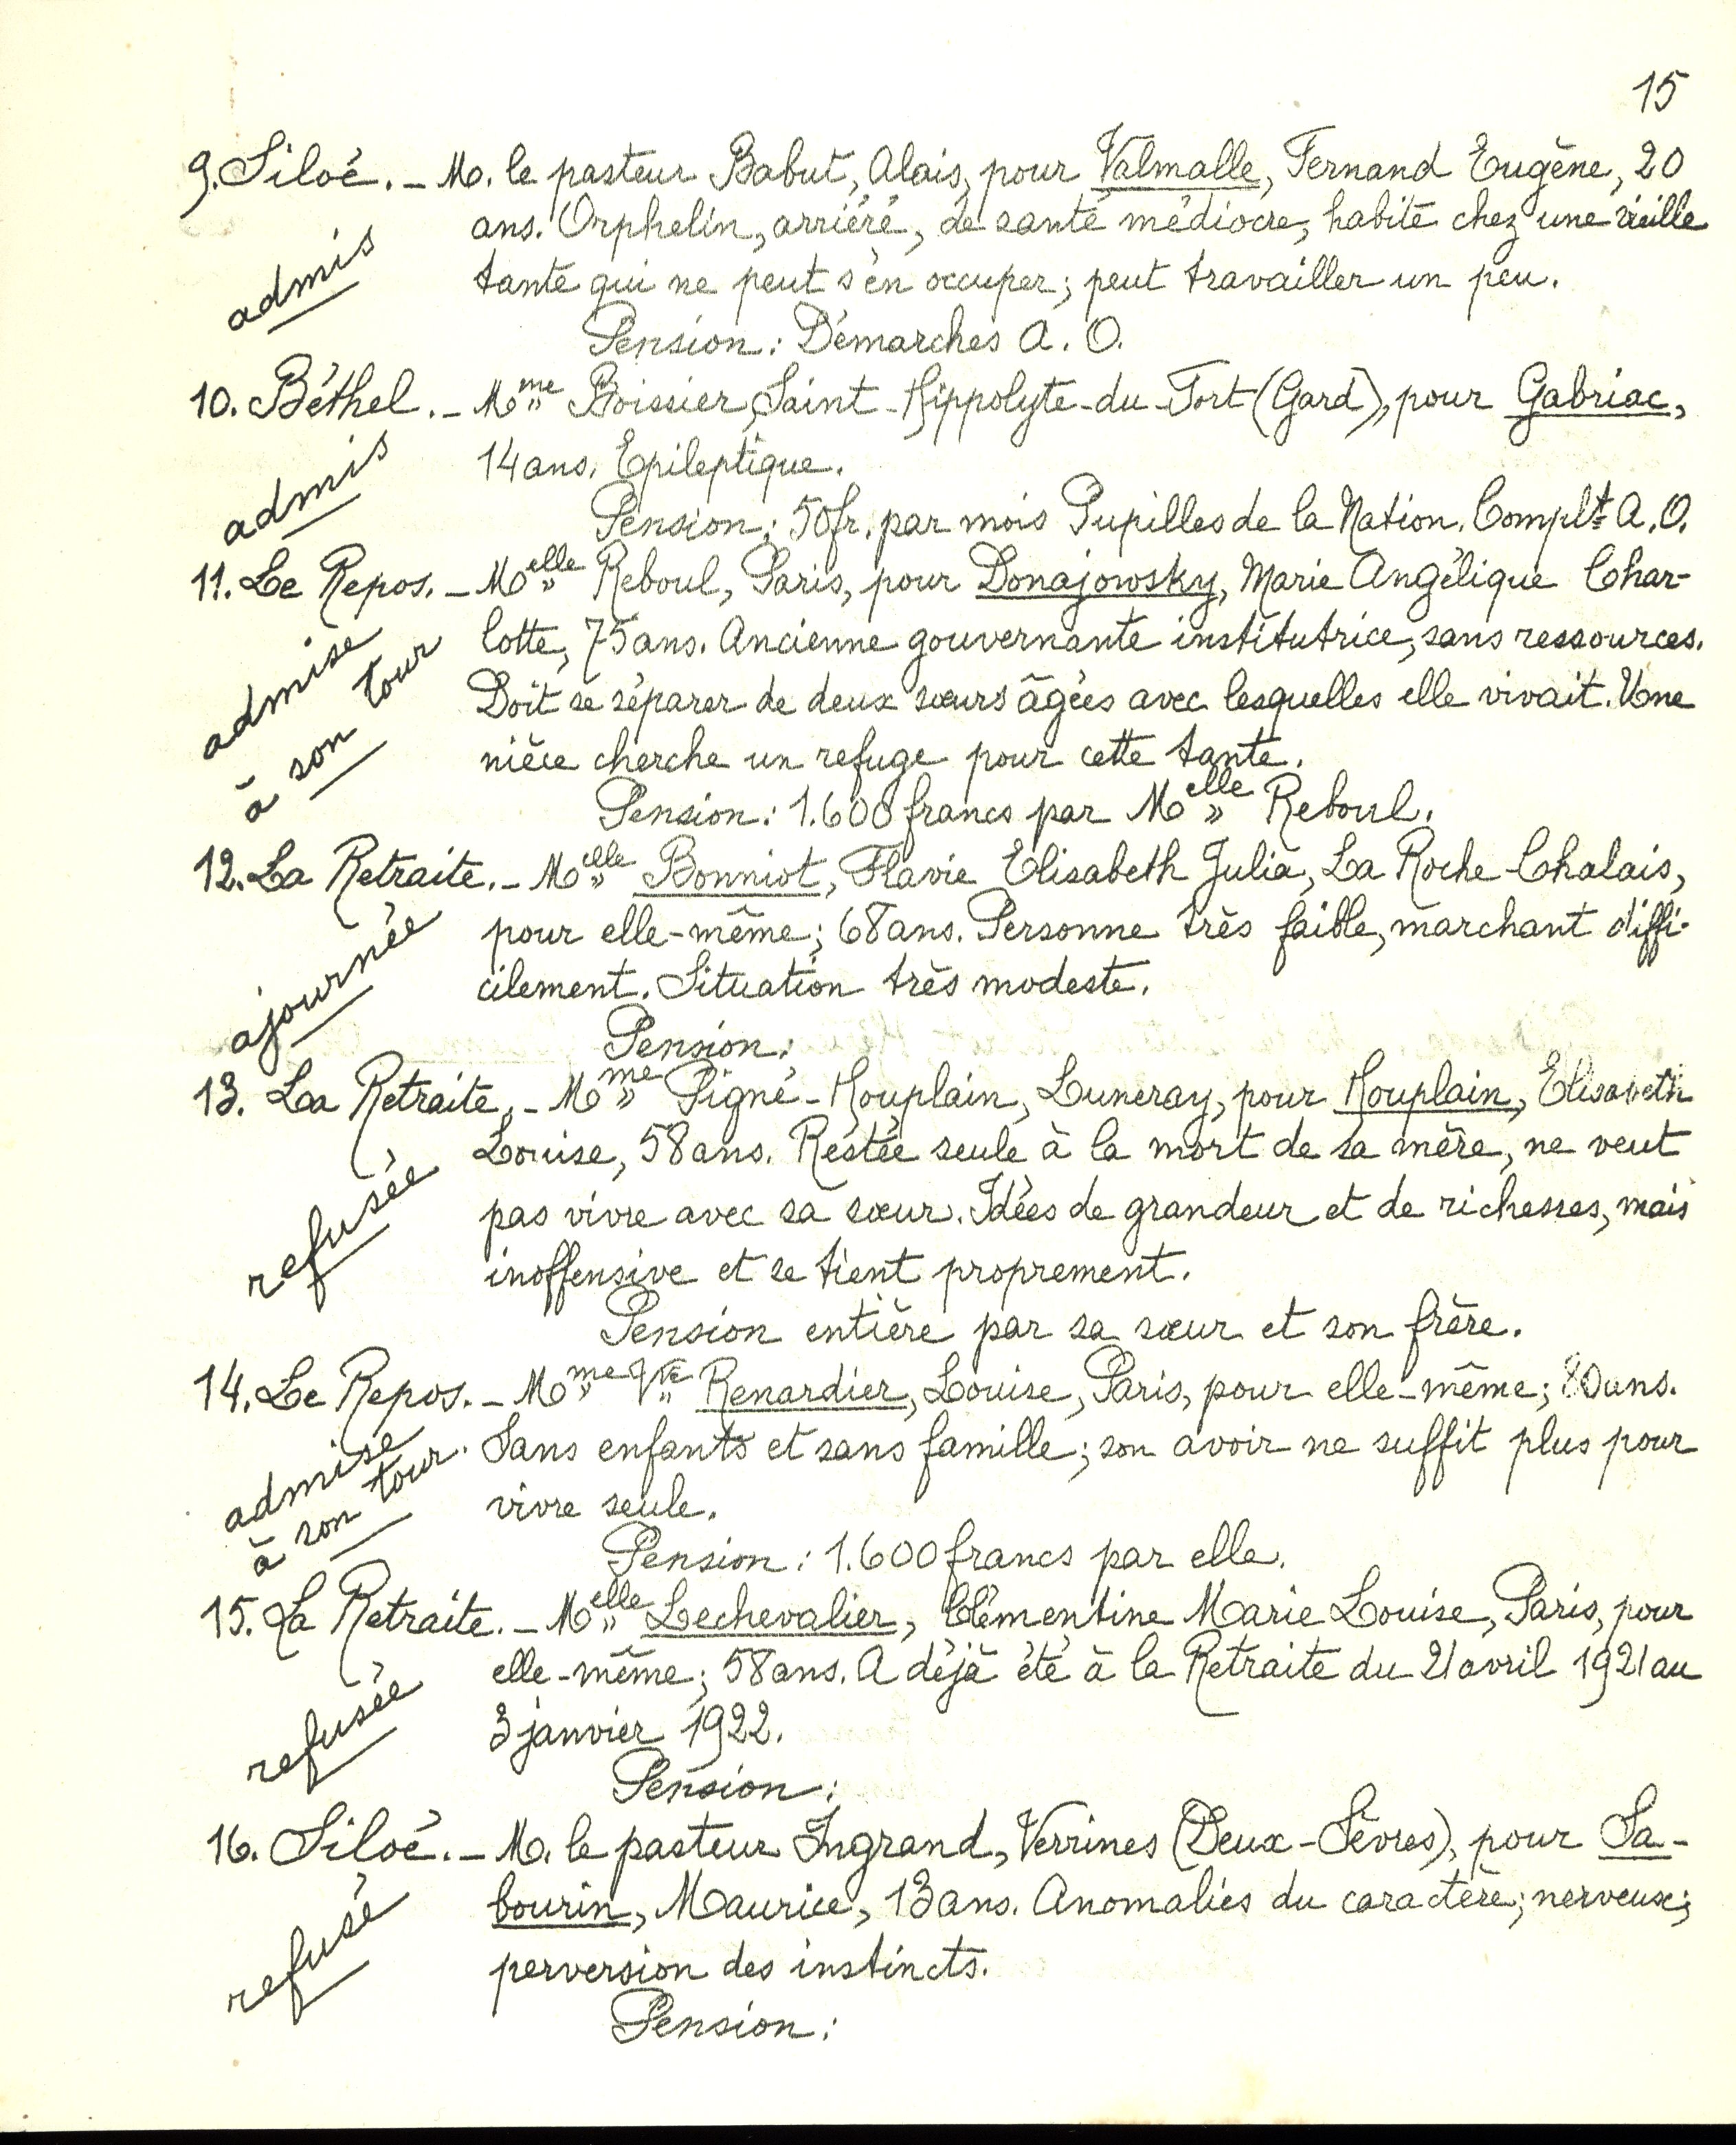 15
9. Siloé. - M. le pasteur Babut, Alais, pour Valmalle, Fernand Eugène, 20
ans. Orphelin, arriéré, de santé médiocre, habite chez une vieille
tante qui ne peut s'en occuper; peut travailler un peu.
admis
Pension: Démarches A. O.
10. Béthel. - Mme Boissier, Saint-Hippolyte-du-Fort (Gard), pour Gabriac,
14 ans. Epileptique.
admis
Pension: 50 fr. par mois Pupilles de la Nation. Complt A. O.
11. Le Repos. - Melle Reboul, Paris, pour Donajowsky, Marie Angélique Char-
lotte, 75 ans. Ancienne gouvernante institutrice, sans ressources.
Doit se séparer de deux sœurs âgées avec lesquelles elle vivait. Une
nièce cherche un refuge pour cette tante.
admise
à son tour
Pension: 1.600 francs par Melle Reboul.
12. La Retraite. - Melle Bonniot, Flavie Elisabeth Julia, La Roche-Chalais,
pour elle-même; 68 ans. Personne très faible, marchant diffi-
cilement. Situation très modeste.
ajournée
Pension:
13. La Retraite. - Mme Pigné-Houplain, Luneray, pour Houplain, Elisabeth
Louise, 58 ans. Restée seule à la mort de sa mère, ne veut
pas vivre avec sa sœur. Idées de grandeur et de richesses, mais
inoffensive et se tient proprement.
refusée
Pension entière par sa sœur et son frère.
14. Le Repos. - Mme Vve Renardier, Louise, Paris, pour elle-même; 80 ans.
Sans enfants et sans famille; son avoir ne suffit plus pour
vivre seule.
admise
à son tour.
Pension: 1.600 francs par elle.
15. La Retraite. - Melle Lechevalier, Clémentine Marie Louise, Paris, pour
elle-même; 58 ans. A déjà été à la Retraite du 21 avril 1921 au
3 janvier 1922.
refusée
Pension:
16. Siloé. - M. le pasteur Ingrand, Verrines (Deux-Sèvres), pour Sa-
bourin, Maurice, 13 ans. Anomalies du caractère; nerveux;
perversion des instincts.
refusé
Pension: